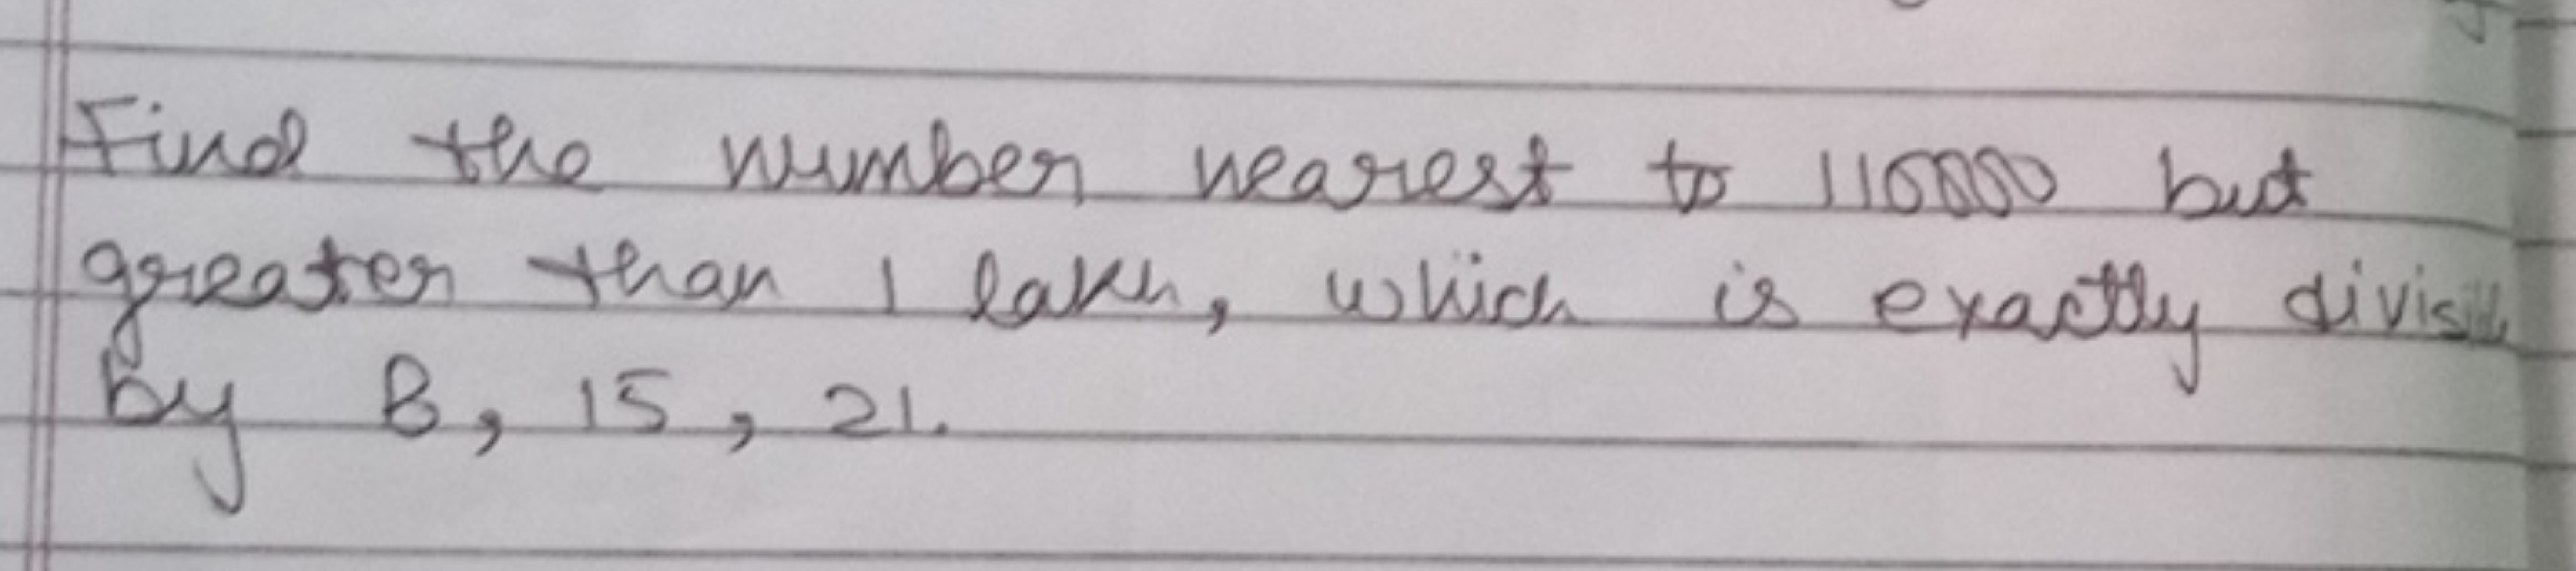 Find the number nearest to 110000 but
greater than 1 lakh, which is exactly
by 8, 15, 21.